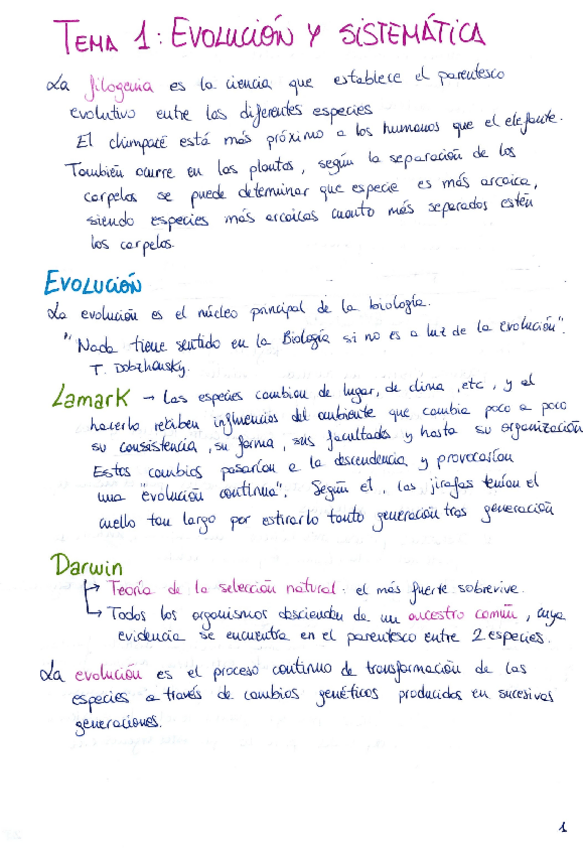 TEMA 1: EVOLUCIÓN Y SISTEMÁTICA
La filogenia es la ciencia que establece el parentesco
evolutivo entre las diferentes especies
El chimpacé está más próximo a los humanos que el elefante.
También ocurre en las plantas, según la separación de los
carpelos se puede determinar que especie es más arcaica,
siendo especies más arcaicas cuanto más separados estén
los carpelos.
EVOLUCIÓN
La evolución es el núcleo principal de la biología.
"Nada tiene sentido en la Biología si no es a luz de la evolución".
T. Dobzhansky.
Lamark → Las especies cambian de lugar, de clima, etc, y al
hacerlo reciben influencias del ambiente que cambia poco a poco
su consistencia, su forma, sus facultades y hasta su organización
Estos cambios pasarían a la descendencia y provocarían
una "evolución continua". Según el, las jirafas tenían el
cuello tan largo por estirarlo tanto generación tras generación
Darwin
→ Teoría de la selección natural: el más fuerte sobrevive.
→ Todos los organismos descienden de un ancestro común, cuya
evidencia se encuentra en el parentesco entre 2 especies.
La evolución es el proceso continuo de transformación de las
especies a través de cambios genéticos producidos en sucesivas
generaciones.
1